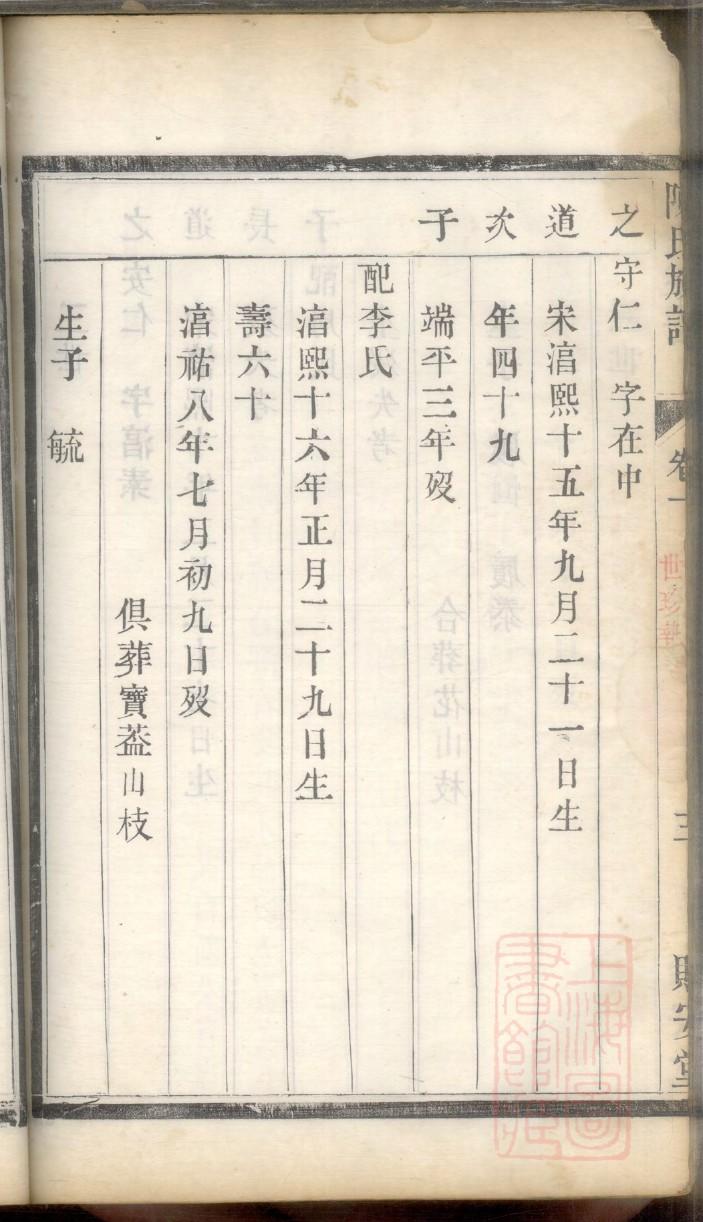 陳氏族譜 卷一 三
之守仁 字在中
道 宋湻熙十五年九月二十一日生
次 年四十九
子 端平三年歿
配李氏
湻熙十六年正月二十九日生
壽六十
湻祐八年七月初九日歿
俱葬寶葢山枝
生子 毓
上海圖
書館藏